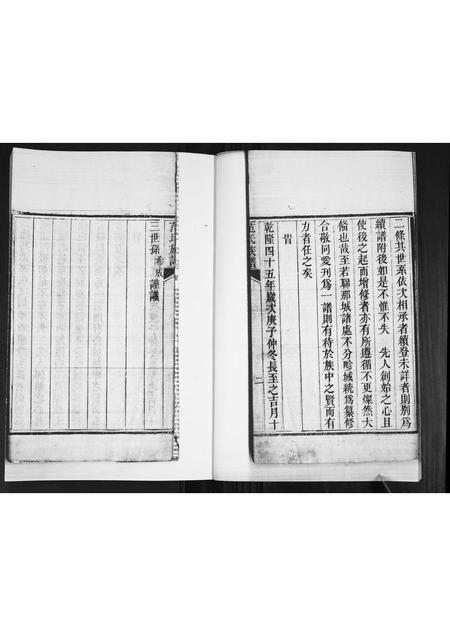 二條其世系依次相承者續登未詳者則別爲
續譜附後如是不惟不失　先人創始之心且
使後之起而增修者亦有所遵循不更燦然大
備也哉至若聯那城諸處不分畛域統爲纂修
合敬同愛刊爲一譜則有待於族中之賢而有
力者任之矣
旹
乾隆四十五年歲次庚子仲冬長至之吉月十
氏族譜
二
氏族譜
三世孫希成謹識